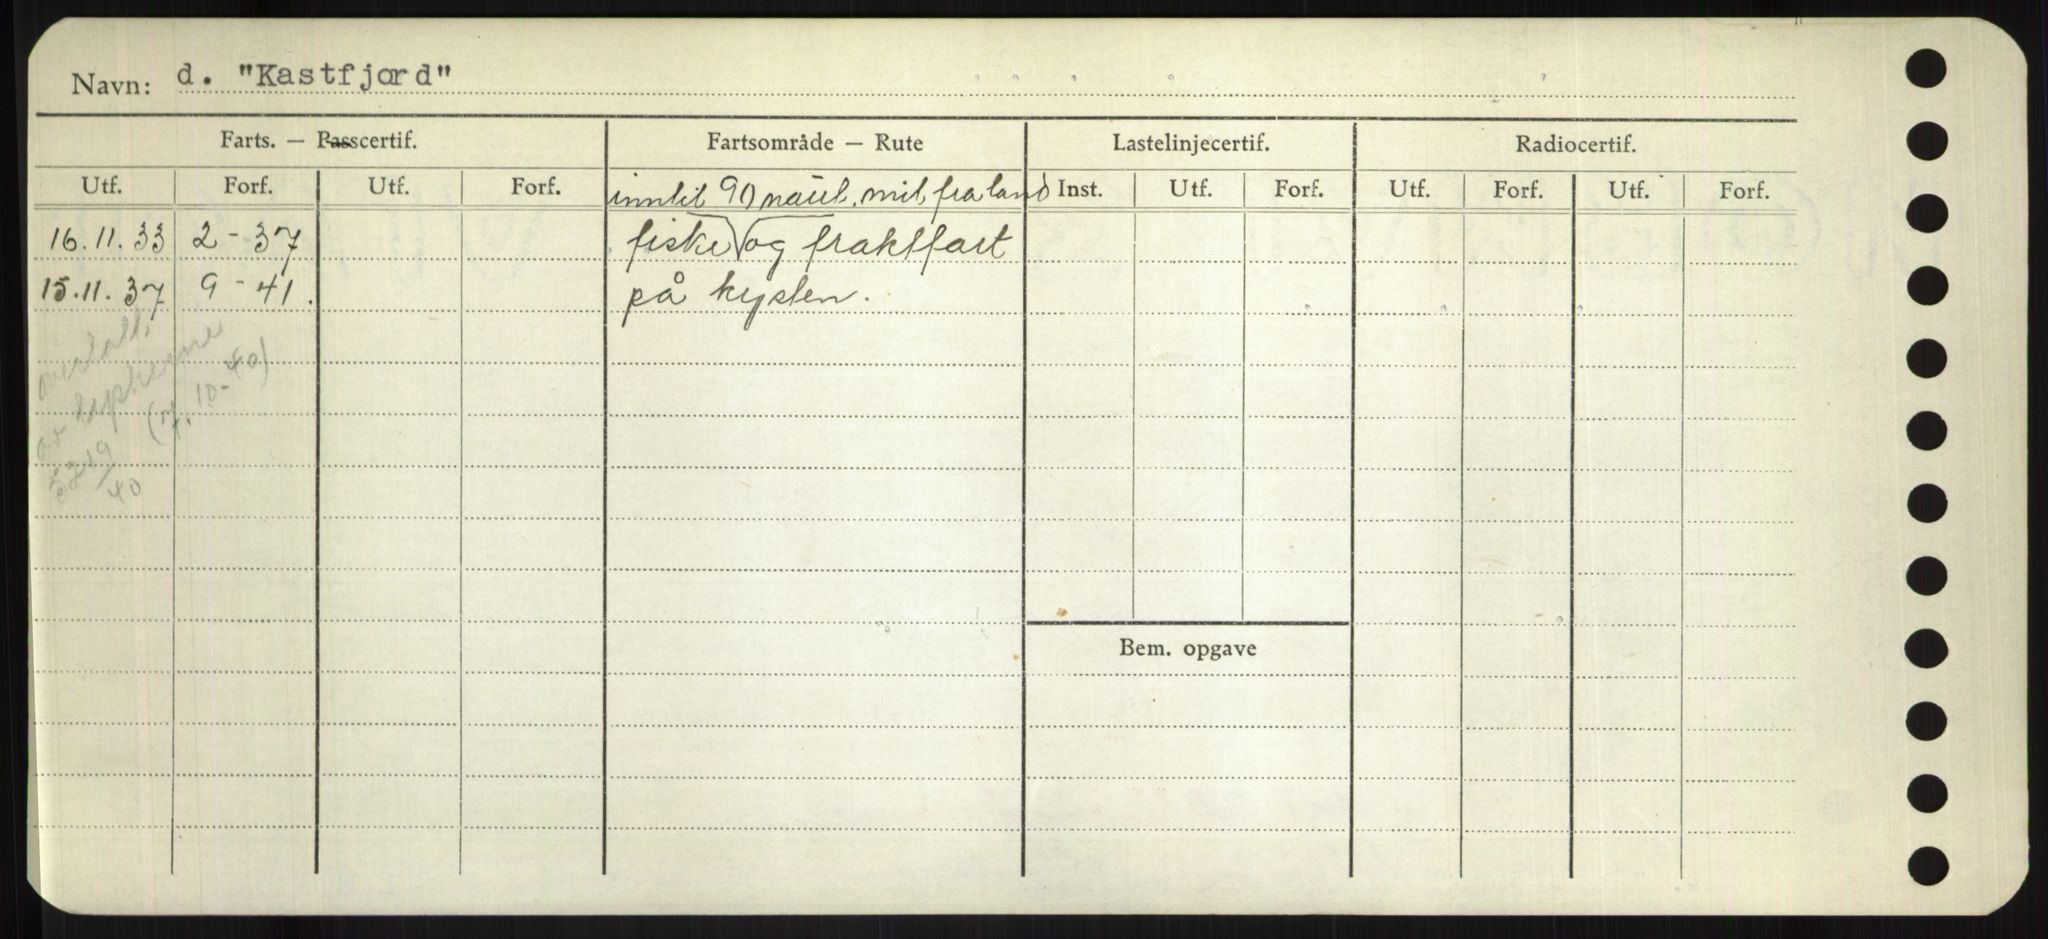 Navn: d. "Kastfjord"
Farts. — Passcertif. Fartsområde — Rute Lastelinjecertif. Radiocertif.
Utf. Forf. Utf. Forf. inntil 90 naut. mil fra land Inst. Utf. Forf. Utf. Forf. Utf. Forf.
16.11.33 2-37 fiske og fraktfart
15.11.37 9-41. på kysten.
overtatt
av
(7.10-40)
40
Bem. opgave